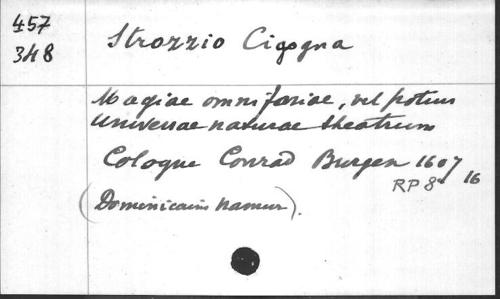 457
348
Strozzio Cigogna
Magiae omnifariae, vel potius
Universae naturae theatrum
Cologne Conrad Burgen 1607
RP 8° 16
(Dominicains Namur).